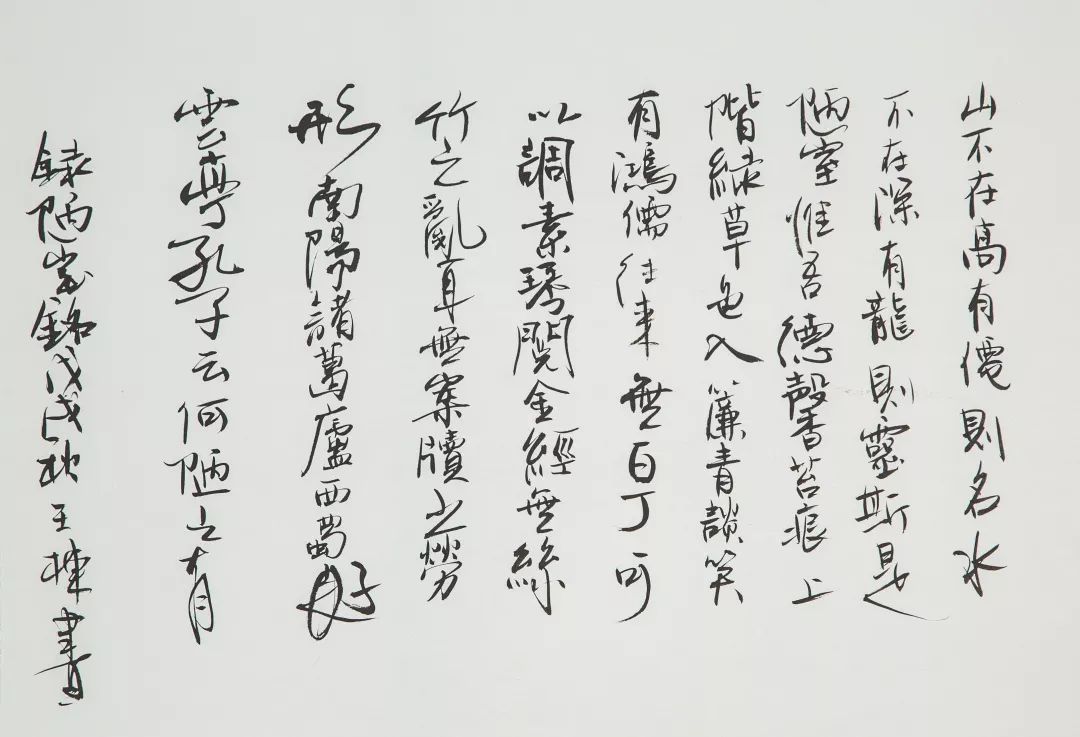 山不在高有僊則名水
不在深有龍則靈斯是
陋室惟吾德馨苔痕上
階緑草色入簾青談笑
有鴻儒往來無白丁可
以調素琴閲金經無絲
竹之亂耳無案牘之勞
形南陽諸葛廬西蜀好
雲亭孔子云何陋之有
録陋室銘戊戌秋王棟書